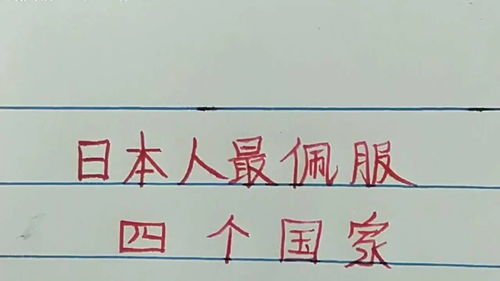 日本人最佩服
四个国家